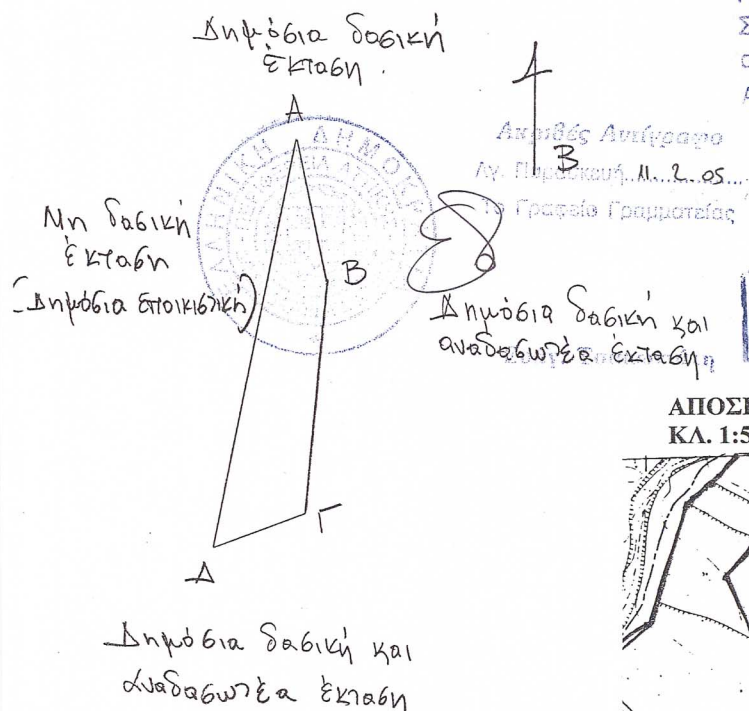 Δημόσια δασική
έκταση.
Α
Ακριβές Αντίγραφο
Β
Αγ. Παρασκευή 11.2.05
Γραφείο Γραμματείας
ΕΛΛΗΝΙΚΗ ΔΗΜΟΚΡ
Μη δασική
έκταση
(Δημόσια εποικιστική)
Β
Δημόσια δασική και
αναδασωτέα έκταση
ΚΛ. 1:5
Γ
Δ
Δημόσια δασική και
αναδασωτέα έκταση